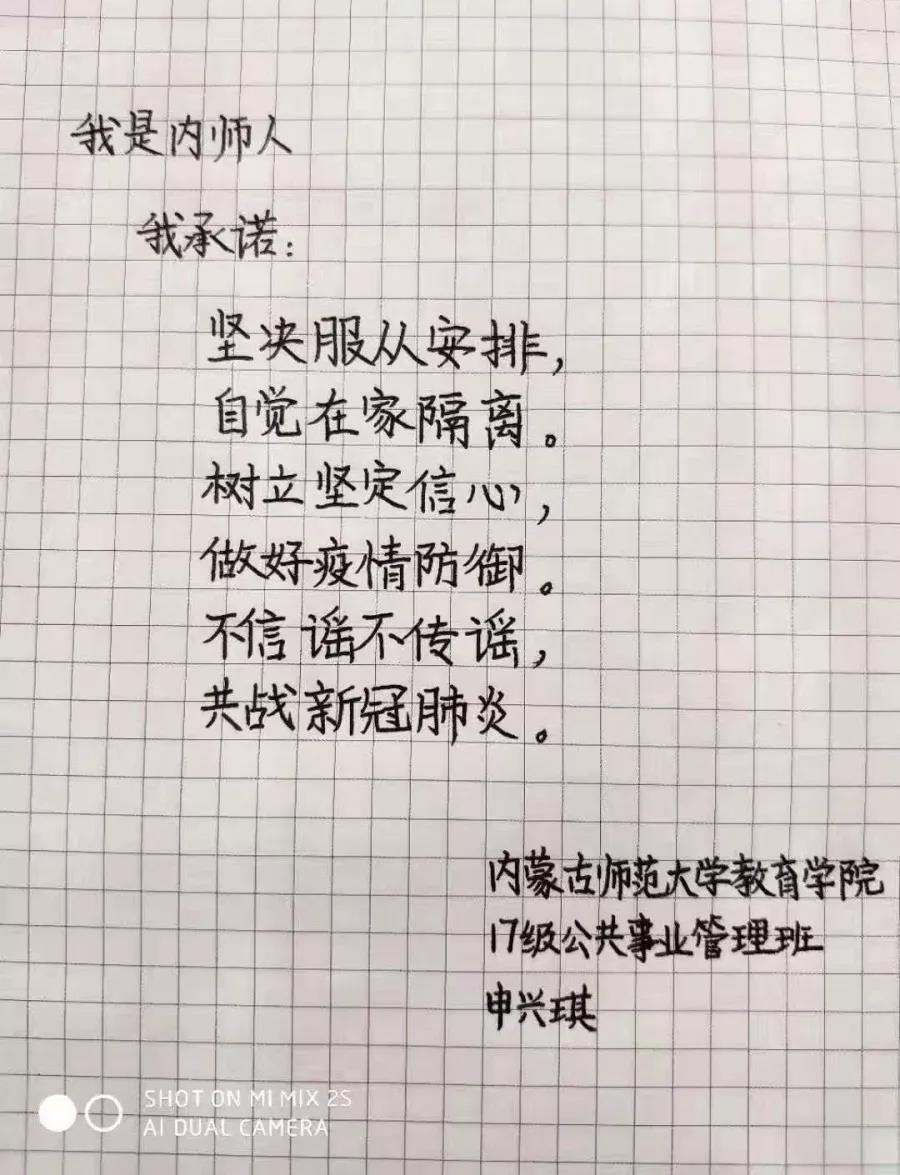 我是内师人
我承诺:
坚决服从安排,
自觉在家隔离。
树立坚定信心,
做好疫情防御。
不信谣不传谣,
共战新冠肺炎。
内蒙古师范大学教育学院
17级公共事业管理班
申兴琪
SHOT ON MI MIX 2S
AI DUAL CAMERA